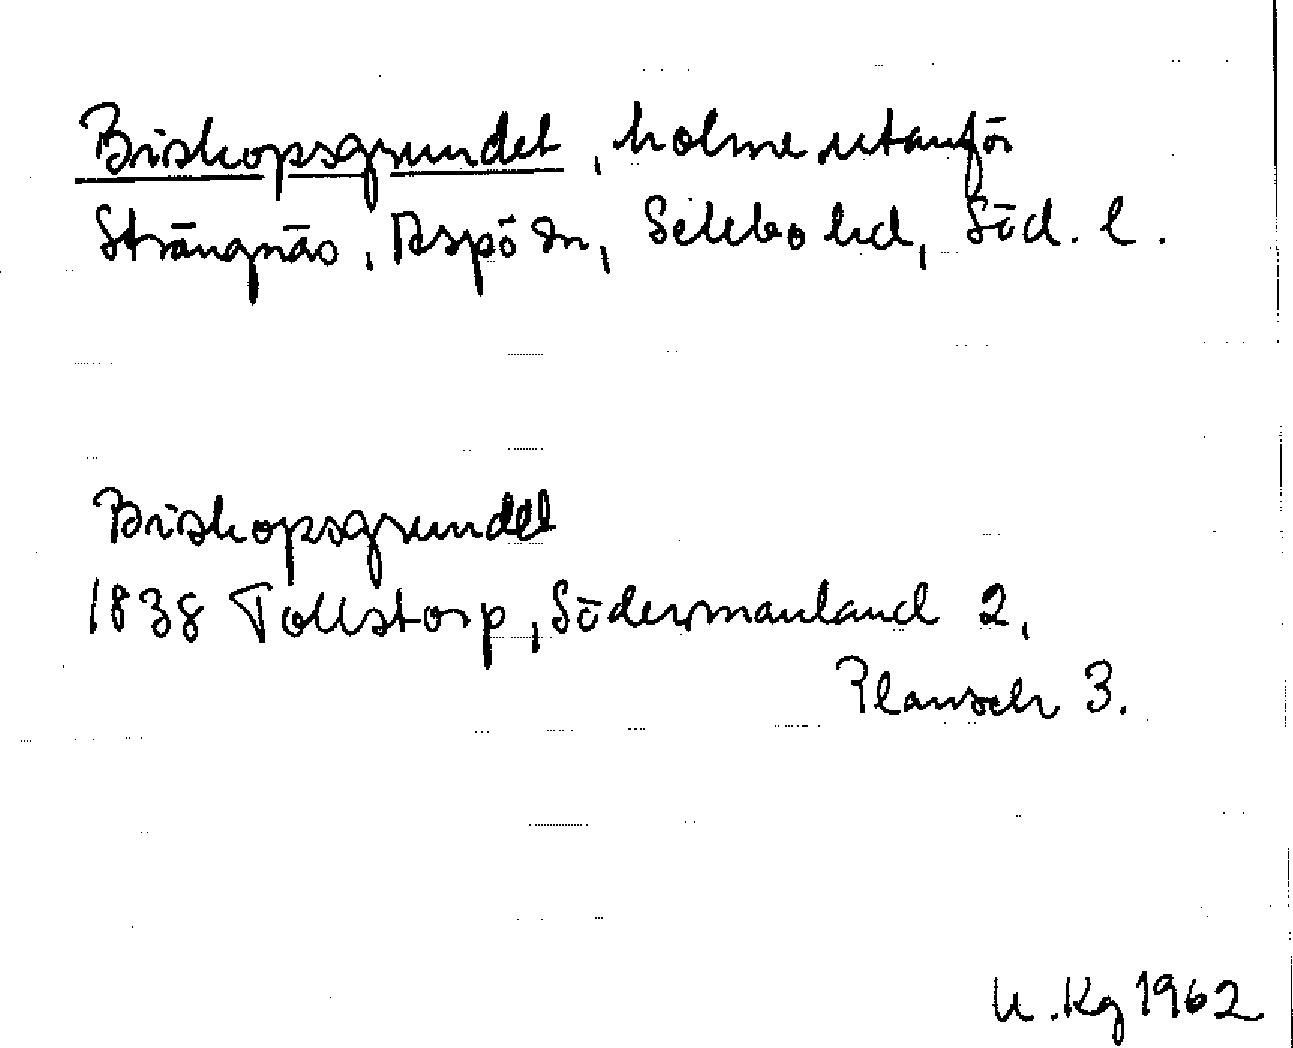 Biskopsgrundet, holme utanför
Strängnäs, Aspö sn, Selebo hd, Söd. l.
Biskopsgrundet
1838 Tollstorp, Södermanland 2,
Plansch 3.
U. Kg 1962